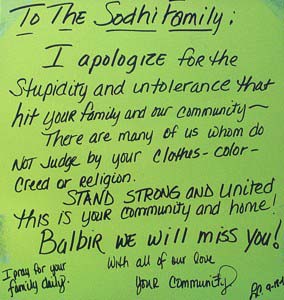 To The Sodhi Family:
I apologize for the
Stupidity and untolerance that
hit your family and our community—
There are many of us whom do
NOT Judge by your Clothes-color-
Creed or Religion.
STAND STRONG AND United
this is your community and home!
Balbir WE will miss you!
With all of our love
Your Community
I pray for your
family daily.